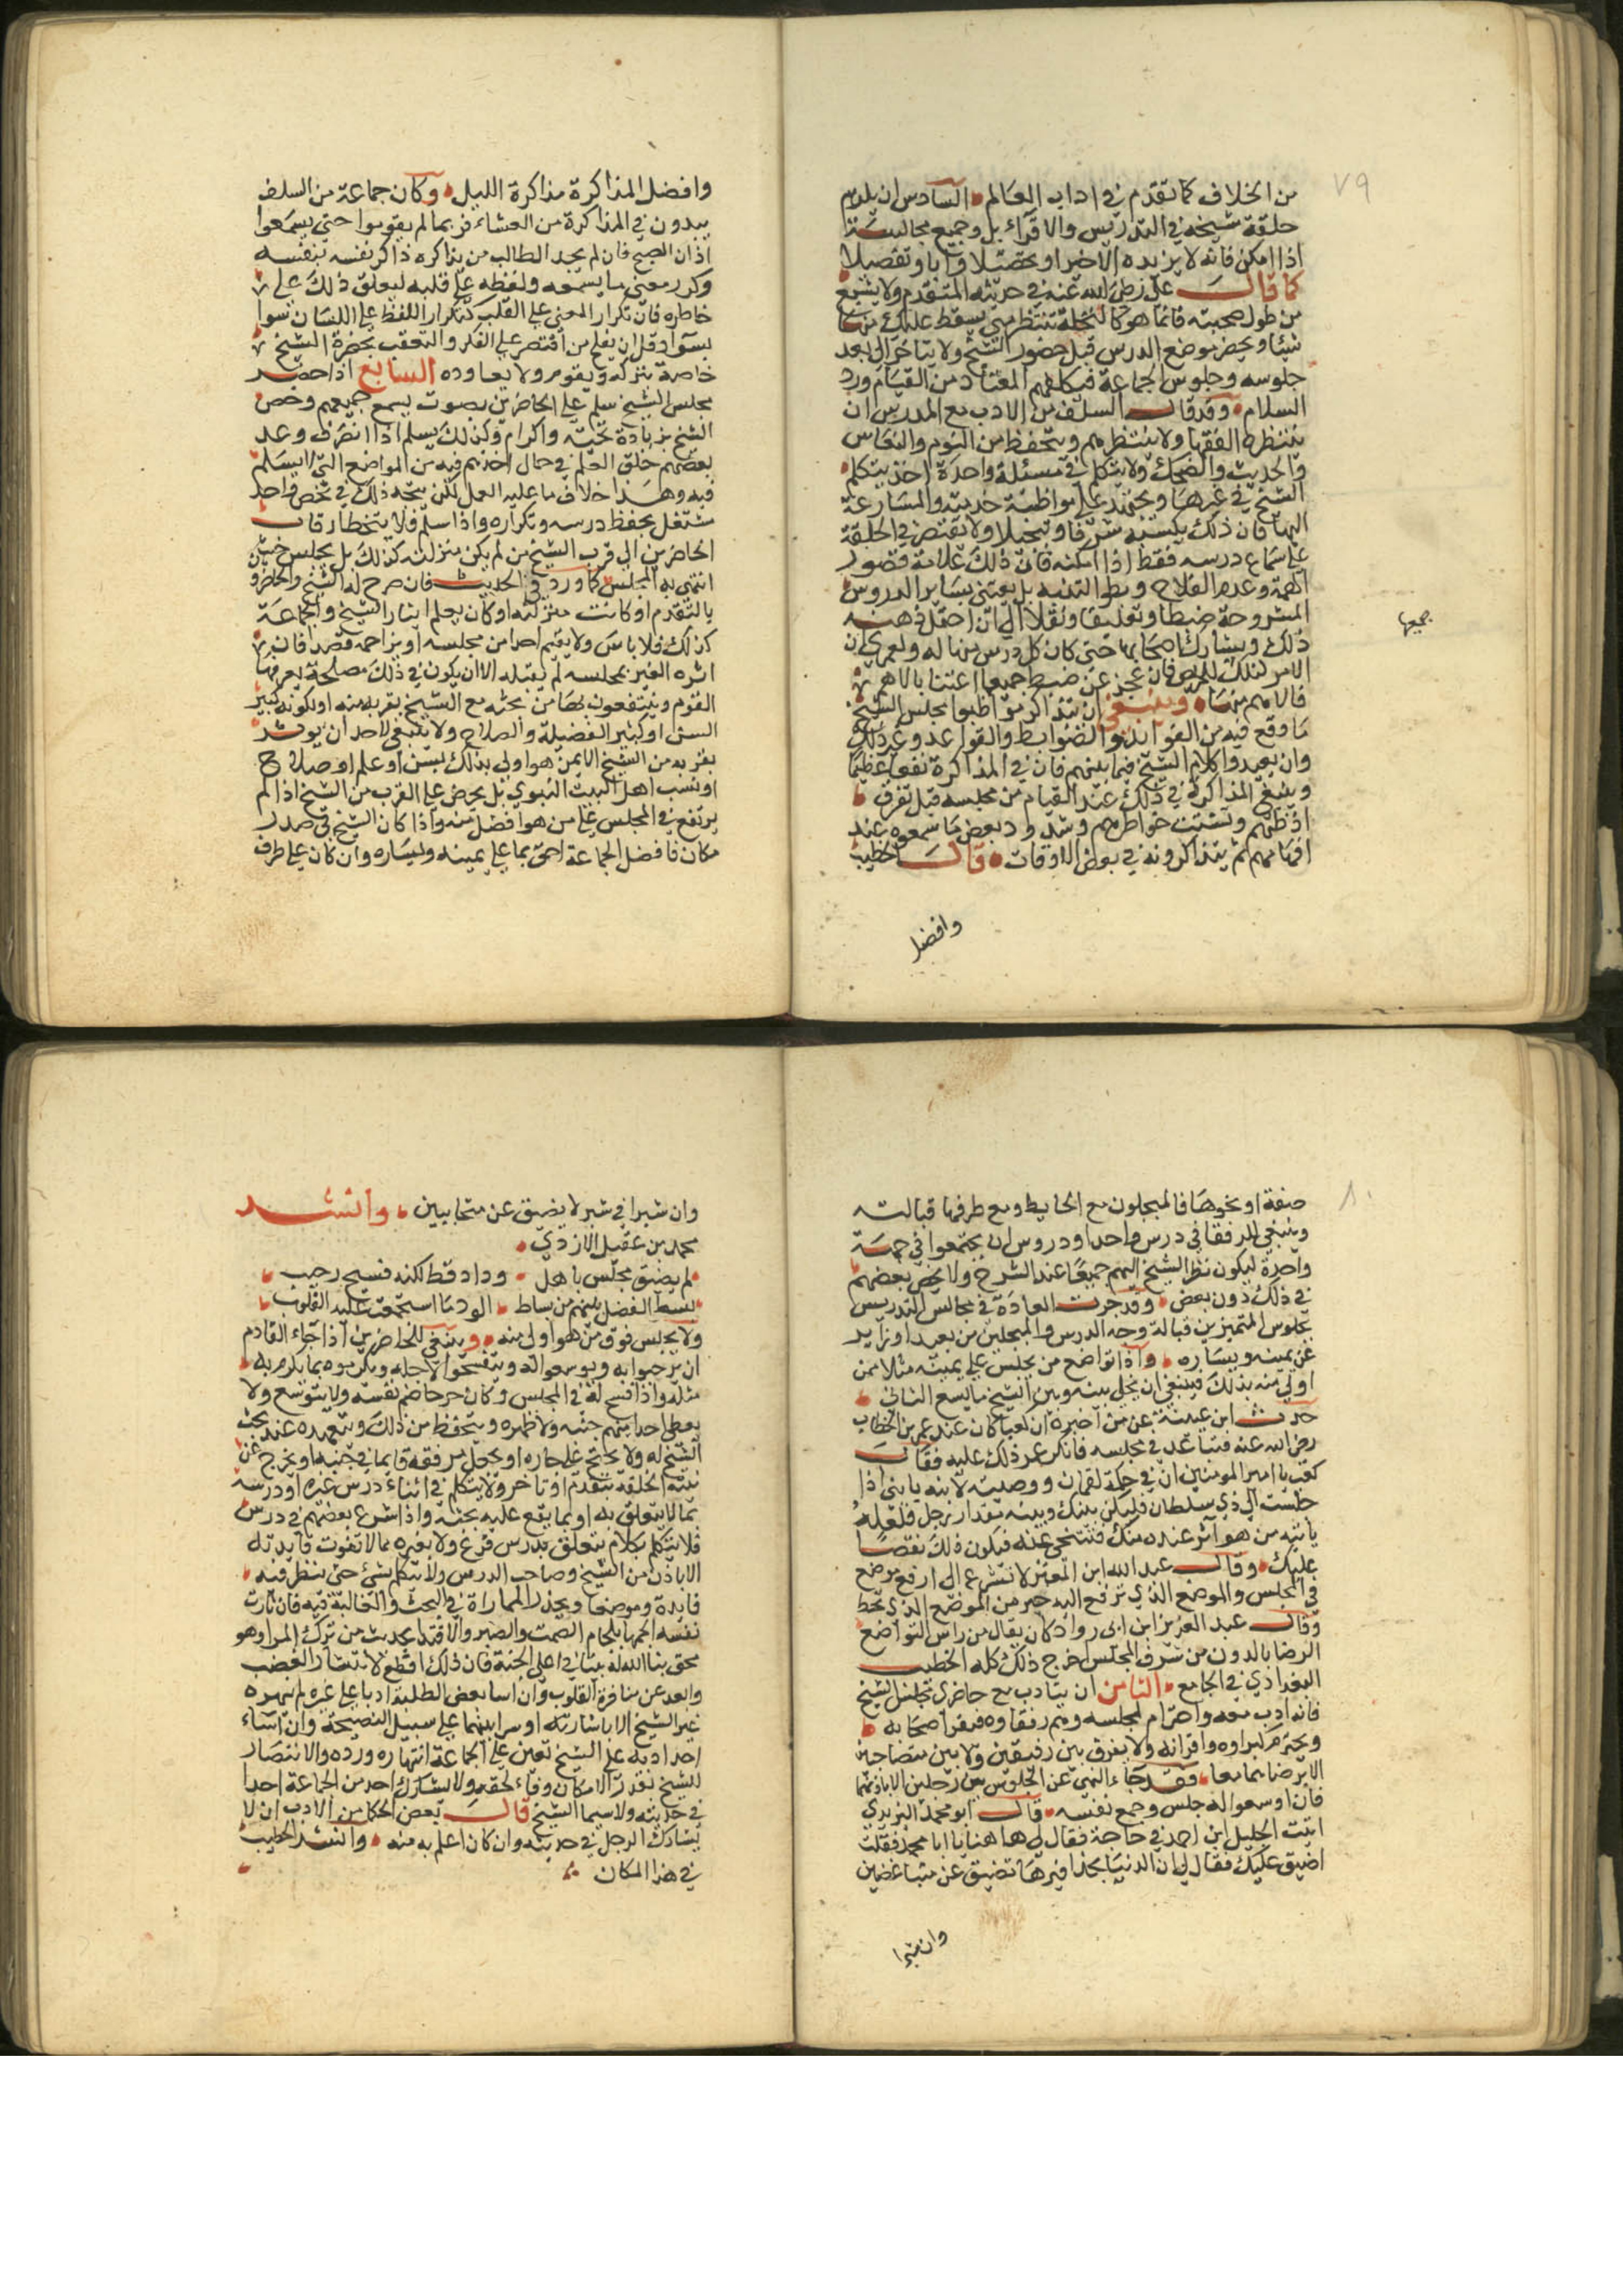 ٧٩
من الخلاف كما تقدم في اداب العالم السادس ان يلزم
حلقة شيخه في التدريس والاقراء بل وجميع مجالسه
اذا امكن فانه لا يزيده الا خيرا وتحصيلا وادبا وتفضيلا
كما قال علي رضي الله عنه في حديثه المتقدم ولا يشبع
من طول صحبته فانما هو كالنخلة تنتظر متى يسقط عليك منها
شيئا ويحضر موضع الدرس قبل حضور الشيخ ولا يتاخر الى بعد
جلوسه وجلوس الجماعة فيكلفهم المعتاد من القيام ورد
السلام وقد قال السلف من الادب مع المدرس ان
ينتظره الفقها ولا ينتظرهم ويتحفظ من النوم والنعاس
والحديث والضحك ولا يتكلم في مسئلة واحدة اخذ يتكلم
الشيخ في غيرها ويجتهد على مواظبة خدمته والمسارعة
اليها فان ذلك يكسبه شرفا وتبجيلا ولا يقتصر في الحلقة
على سماع درسه فقط اذا امكنه فان ذلك علامة قصور
الهمة وعدم الفلاح وبطو التنبه بل يعتني بساير الدروس
المشروحة ضبطا وتعليقا ونقلا الى ان احتمل ذهنه
جميعها
ذلك ويشارك اصحابها حتى كان كل درس منها له ولعمري ان
الامر كذلك للحريص فان عجز عن ضبط جميعها اعتنا بالاهم
فالاهم منها وينبغي ان يتذاكر مواظبوا مجلس الشيخ
ما وقع فيه من الفوايد والضوابط والقواعد وغير ذلك
وان يعيدوا كلام الشيخ فيما بينهم فان في المذاكرة نفعا عظيما
وينبغي المذاكرة في ذلك عند القيام من مجلسه قبل تفرق
اذهانهم وتشتت خواطرهم وشدود بعض ما سمعوه عند
افهامهم ثم يتذاكرونه في بعض الاوقات قال الخطيب
وافضل
وافضل المذاكرة مذاكرة الليل وكان جماعة من السلف
يبدون في المذاكرة من العشاء فربما لم يقوموا حتى يسمعوا
اذان الصبح فان لم يجد الطالب من يذاكره ذاكر نفسه بنفسه
وكرر معنى ما يسمعه ولفظه على قلبه ليعلق ذلك على
خاطره فان تكرار المعنى على القلب كتكرار اللفظ على اللسان سوا
بسوا وقل ان يفلح من اقتصر على الفكر والتعقب بحضرة الشيخ
خاصة يتركه ويقوم ولا يعاوده السابع اذا حضر
مجلس الشيخ سلم على الحاضرين بصوت يسمع جميعهم وخص
الشيخ بزيادة تحية واكرام وكذلك يسلم اذا انصرف وعد
بعضهم حلق العلم في حال اخذهم فيه من المواضع التي لا يسلم
فيه وهذا خلاف ما عليه العمل لكن يتجه ذلك في شخص واحد
مشتغل بحفظ درسه وتكراره واذا سلم فلا يتخطا رقاب
الحاضرين الى قرب الشيخ من لم يكن منزلته كذلك بل يجلس حيث
انتهى به المجلس كما ورد في الحديث فان صرح له الشيخ والحاضرون
بالتقدم او كانت منزلته او كان يعلم ايثار الشيخ والجماعة
كذلك فلا باس ولا يقيم احدا من مجلسه او يزاحمه قصدا فان
اثره الغير بمجلسه لم يقبله الا ان يكون في ذلك مصلحة يعرفها
القوم وينتفعون بها من بحثه مع الشيخ بقربه منه او لكونه كبير
السن او كثير الفضيلة والصلاح ولا ينبغي لاحد ان يوثر
بقربه من الشيخ الا لمن هو اولى بذلك بسن او علم او صلاح
او نسب اهل البيت النبوي بل يحرص على القرب من الشيخ اذا لم
يرتفع في المجلس على من هو افضل منه واذا كان الشيخ في صدر
مكان فافضل الجماعة احق بما على يمينه ويساره وان كان على طرف
٨٠
صفة او نحوها فالمبجلون مع الحايط ومع طرفها قبالته
وينبغي للرفقا في درس واحد او دروس ان يجتمعوا في جهة
واحدة ليكون نظر الشيخ اليهم جميعا عند الشرح ولا يخص بعضهم
في ذلك دون بعض وقد جرت العادة في مجالس التدريس
بجلوس المتميزين قبالة وجه الدرس والمبجلين من بعيد او زاير
عن يمينه ويساره واذا تواضع من يجلس على يمينه مثلا ممن
اولى منه بذلك فينبغي ان يخلي بينه وبين الشيخ ما يسع الثاني
حدث ابن عيينة عن من اخبره ان كعبا كان عند عمر بن الخطاب
رضي الله عنه فتباعد في مجلسه فانكر عمر ذلك عليه فقال
كعب يا امير المومنين ان في حكمة لقمان ووصيته لابنه يا بني اذا
جلست الى ذي سلطان فليكن بينك وبينه مقدار رجل فلعله
ياتيه من هو آثر عنده منك فتتنحى عنه فيكون ذلك نقصا
عليك وقال عبد الله ابن المعتز لا تسرع الى ارفع موضع
في المجلس والموضع الذي ترفع اليه خير من الموضع الذي تحط
وقال عبد العزيز ابن ابي رواد كان يقال من راس التواضع
الرضا بالدون من شرف المجلس اخرج ذلك كله الخطيب
البغدادي في الجامع الثامن ان يتادب مع حاضري مجلس الشيخ
فانه ادب معه واحترام لمجلسه وهم رفقاوه فيوقر اصحابه
ويحترم كبراوه واقرانه ولا يفرق بين رفيقين ولا بين متصاحبين
الا برضاهما معا فقد جاء النهي عن الجلوس بين رجلين الا باذنهما
فان اوسعوا له جلس وجمع نفسه قال ابو محمد اليزيدي
اتيت الخليل ابن احمد في حاجة فقال لي هاهنا يا ابا محمد فقلت
اضيق عليك فقال لي ان الدنيا بحذافيرها تضيق عن متباغضين
وان شبرا
وان شبرا في شبر لا يضيق عن متحابين وانشد
محمد بن عقيل الازدي
لم يضيق مجلس باهل وداد قط لكنه فسيح رحيب
بسط الفضل بينهم من بساط الود ما استجمعت عليه القلوب
ولا يجلس فوق من هو اولى منه وينبغي للحاضرين اذا جاء القادم
ان يرحبوا به ويوسعوا له ويتفسحوا لاجله ويكرموه بما يكرم به
مثله واذا فسح له في المجلس وكان حرجا ضم نفسه ولا يتوسع ولا
يعطي احدا منهم جنبه ولا ظهره ويتحفظ من ذلك ويتعهده عند بحث
الشيخ له ولا يجنح على جاره او يجعل مرفقه قايما في جنبه او يخرج عن
بقية الحلقة بتقدم او تاخر ولا يتكلم في اثناء درس غيره او درسه
بما لا يتعلق به او بما يقع عليه بحثه واذا شرع بعضهم في درس
فلا يتكلم بكلام يتعلق بدرس فرغ ولا بغيره مما لا تفوت فايدته
الا باذن من الشيخ وصاحب الدرس ولا يتكلم بشئ حتى ينظر فيه
فايدة وموضعا ويحذر المماراة في البحث والمغالبة فيه فان ثارت
نفسه الجمها بلجام الصمت والصبر والاقتدا بحديث من ترك المرا وهو
محق بنا الله له بيتا في اعلى الجنة فان ذلك اقطع لانتشار الغضب
وابعد عن منافرة القلوب وان اسا بعض الطلبة ادبا على غيره لم ينهره
غير الشيخ الا باشارته او سرا بينهما على سبيل النصيحة وان اساء
احد ادبه على الشيخ تعين على الجماعة انتهاره ورده والانتصار
للشيخ بقدر الامكان وفاء لحقه ولا يشارك احد من الجماعة احدا
في حديثه ولا سيما الشيخ قال بعض الحكما من الادب ان لا
يشارك الرجل في حديثه وان كان اعلم به منه وانشد الخطيب
في هذا المكان